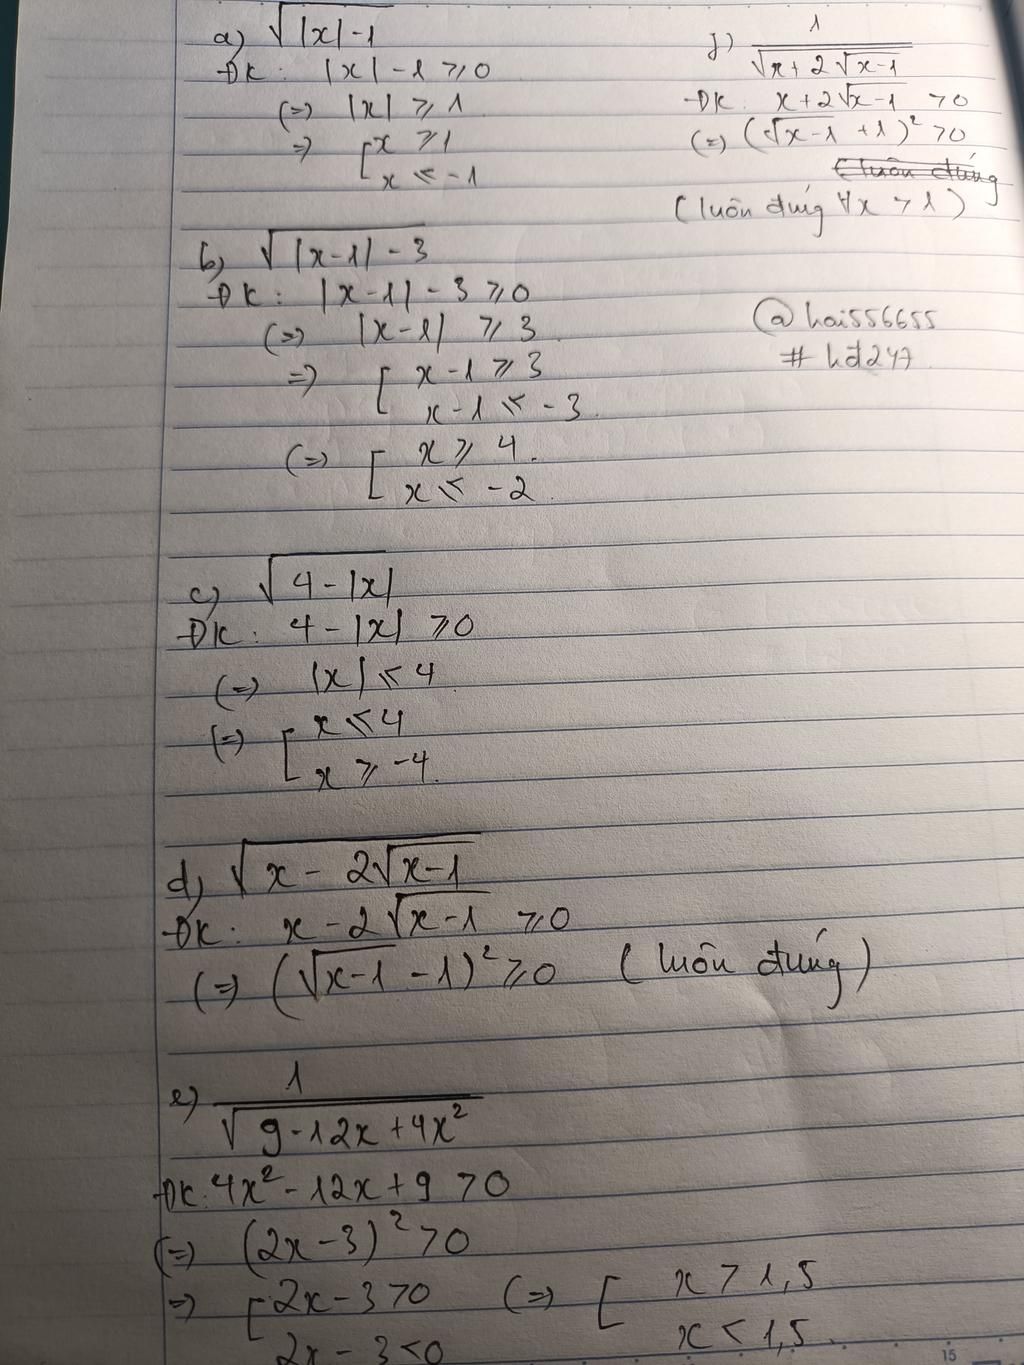 a) √|x|-1
ĐK: |x|-1 ⩾0
(=) |x| ⩾ 1
=) [x ⩾1
x ⩽ -1
b) √|x-1| - 3
ĐK: |x-1| - 3 ⩾0
(=) |x-1| ⩾ 3
=) [ x-1 ⩾ 3
x-1 ⩽ -3.
(=) [ x ⩾ 4.
x ⩽ -2.
c) √4-|x|
ĐK: 4-|x| ⩾0
(=) |x| ⩽ 4
(=) [ x ⩽ 4
x ⩾ -4.
d) √x - 2√x-1
ĐK: x - 2√x-1 ⩾0
(=) (√x-1 -1)² ⩾0 ( luôn đúng)
e) 1
√9-12x+4x²
ĐK: 4x²-12x+9 >0
(=) (2x-3)² >0
=) [ 2x-3 >0 (=) [ x > 1,5
2x-3 <0 x < 1,5.
f) 1
√x+2√x-1
ĐK: x+2√x-1 >0
(=) (√x-1 +1)² >0
(luôn đúng
(luôn đúng ∀x > 1)
@hai556655
#hđ247
15